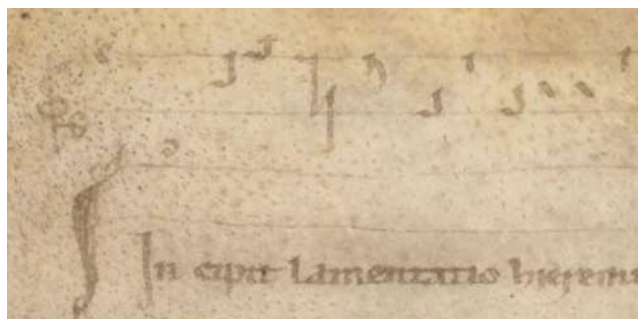 In cipit lamentatio hieremi